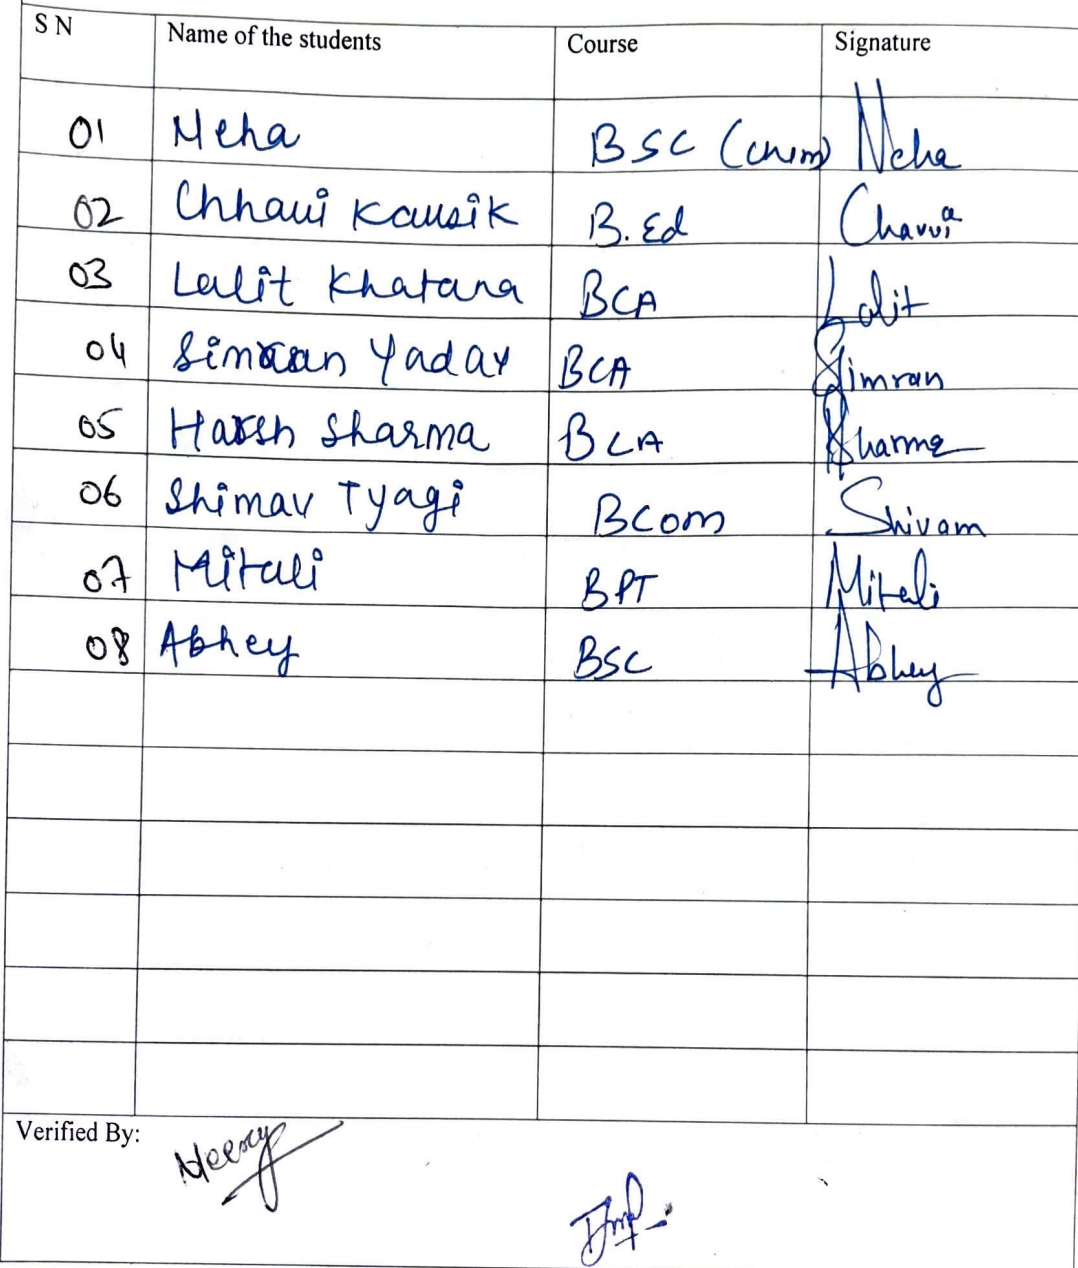 S N Name of the students Course Signature
01 Neha BSC (Chem) Neha
02 Chhavi Kausik B.Ed Chavvi
03 Lalit Khatana BCA Lalit
04 Simran Yadav BCA Simran
05 Harsh Sharma BCA Sharma
06 Shimav Tyagi BCom Shivam
07 Mitali BPT Mitali
08 Abhey BSC Abhey
Verified By: Neeraj